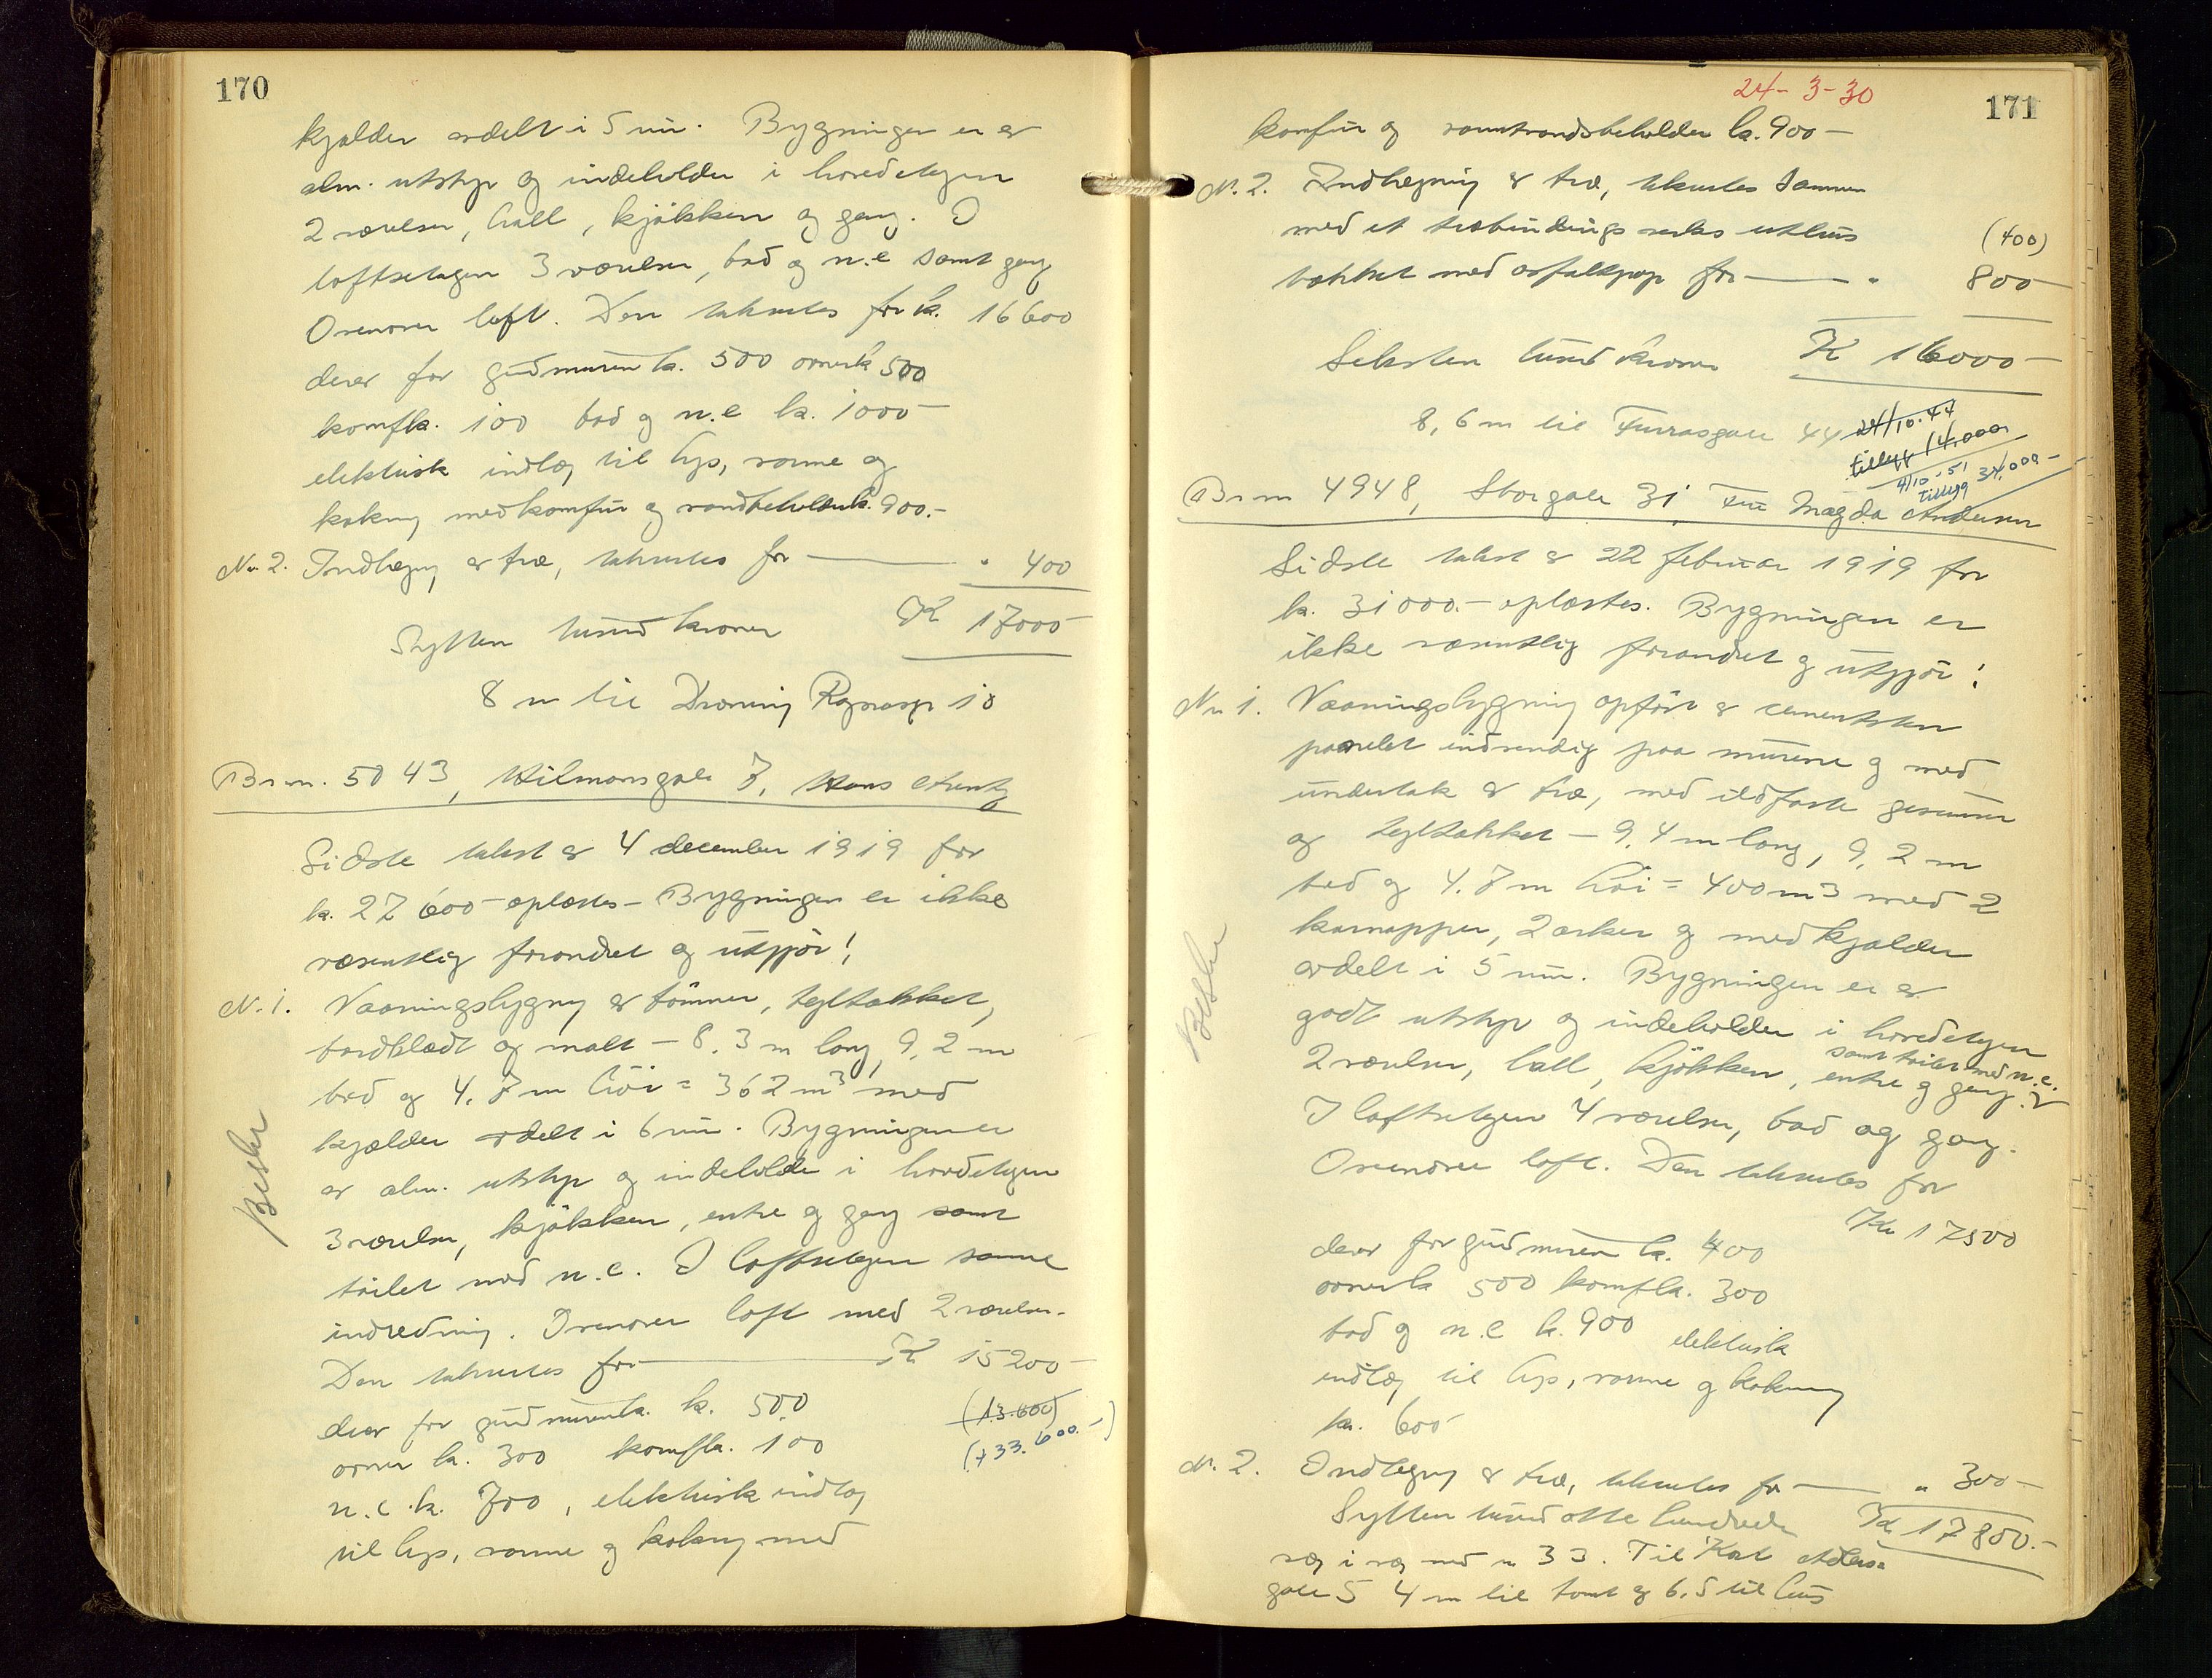 170
kjælder avdelt i 5 rum. Bygningen er av
alm. utstyr og indeholder i hovedetagen
2 værelser, hall, kjøkken og gang. I
loftsetagen 3 værelser, bad og w.c samt gang
Ovenover loft. Den takseres for kr. 16600
derav for grundmuren kr. 500 ovner kr 500
komf kr. 100 bad og w.c kr. 1000-
elektrisk indlæg til lys, varme og
kokning med komfur og vandbeholder kr. 900.-
No 2. Indhegning av træ, takseres for — " 400
Sytten tusind kroner Kr 17000-
8 m til Dronning Ragnasgt 10
Br no. 5043, Hilmarsgate 7, Hans Arentz
Sidste takst av 4 december 1919 for
kr. 27600- oplæstes - Bygningen er ikke
væsentlig forandret og utgjør!
No. 1. Vaaningsbygning av tømmer, tegltækket,
bordklædt og malt - 8,3 m lang, 9,2 m
bred og 4,7 m høi = 362 m3 med
kjælder avdelt i 6 rum. Bygningen er
av alm. utstyr og indeholder i hovedetagen
3 værelser, kjøkken, entre og gang samt
toilet med w.c. I loftsetagen samme
indredning. Ovenover loft med 2 værelser.
Den takseres for — Kr 15200-
derav for grundmuren kr. 500
(13.600)
ovner kr. 300 komf kr. 100
(+33.600.-)
w.c. kr. 700, elektrisk indlæg
til lys, varme og kokning med
24-3-30
171
komfur og varmtvandsbeholder kr. 900-
No. 2. Indhegning av træ, takseres sammen
med et træbindingsverks uthus
(400)
tækket med asfaltpap for — " 800-
Seksten tusind kroner Kr 16000-
8,6 m til Furrasgate 44
24/10.44
tillegg 14.000
4/10-51
tillegg 34.000-
Br no 4948, Storgate 31 Fru Magda Andersen
Sidste takst av 22 februar 1919 for
kr. 31000.- oplæstes. Bygningen er
ikke væsentlig forandret og utgjør!
No 1. Vaaningsbygning opført av cementsten
panelet indvendig paa murene og med
undertak av træ, med ildfaste gesimser
og tegltækket - 9,4 m lang, 9,2 m
bred og 4,7 m høi = 400 m3 med 2
karnapper, 2 arker og med kjælder
avdelt i 5 rum. Bygningen er av
godt utstyr og indeholder i hovedetagen
samt toilet med w.c.
2 værelser, hall, kjøkken, entre og gang
I loftsetagen 4 værelser, bad og gang.
Ovenover loft. Den takseres for
Kr 17500
derav for grundmuren kr. 400
ovner kr 500 komf kr. 300
bad og w.c kr. 900 elektrisk
indlæg til lys, varme og kokning
kr. 600-
No. 2. Indhegning av træ, takseres for — " 300-
Sytten tusind otte hundrede Kr 17800.-
væg i væg med no 33. Til Karl
gate 5 4 m til tomt og 6,5 til hus